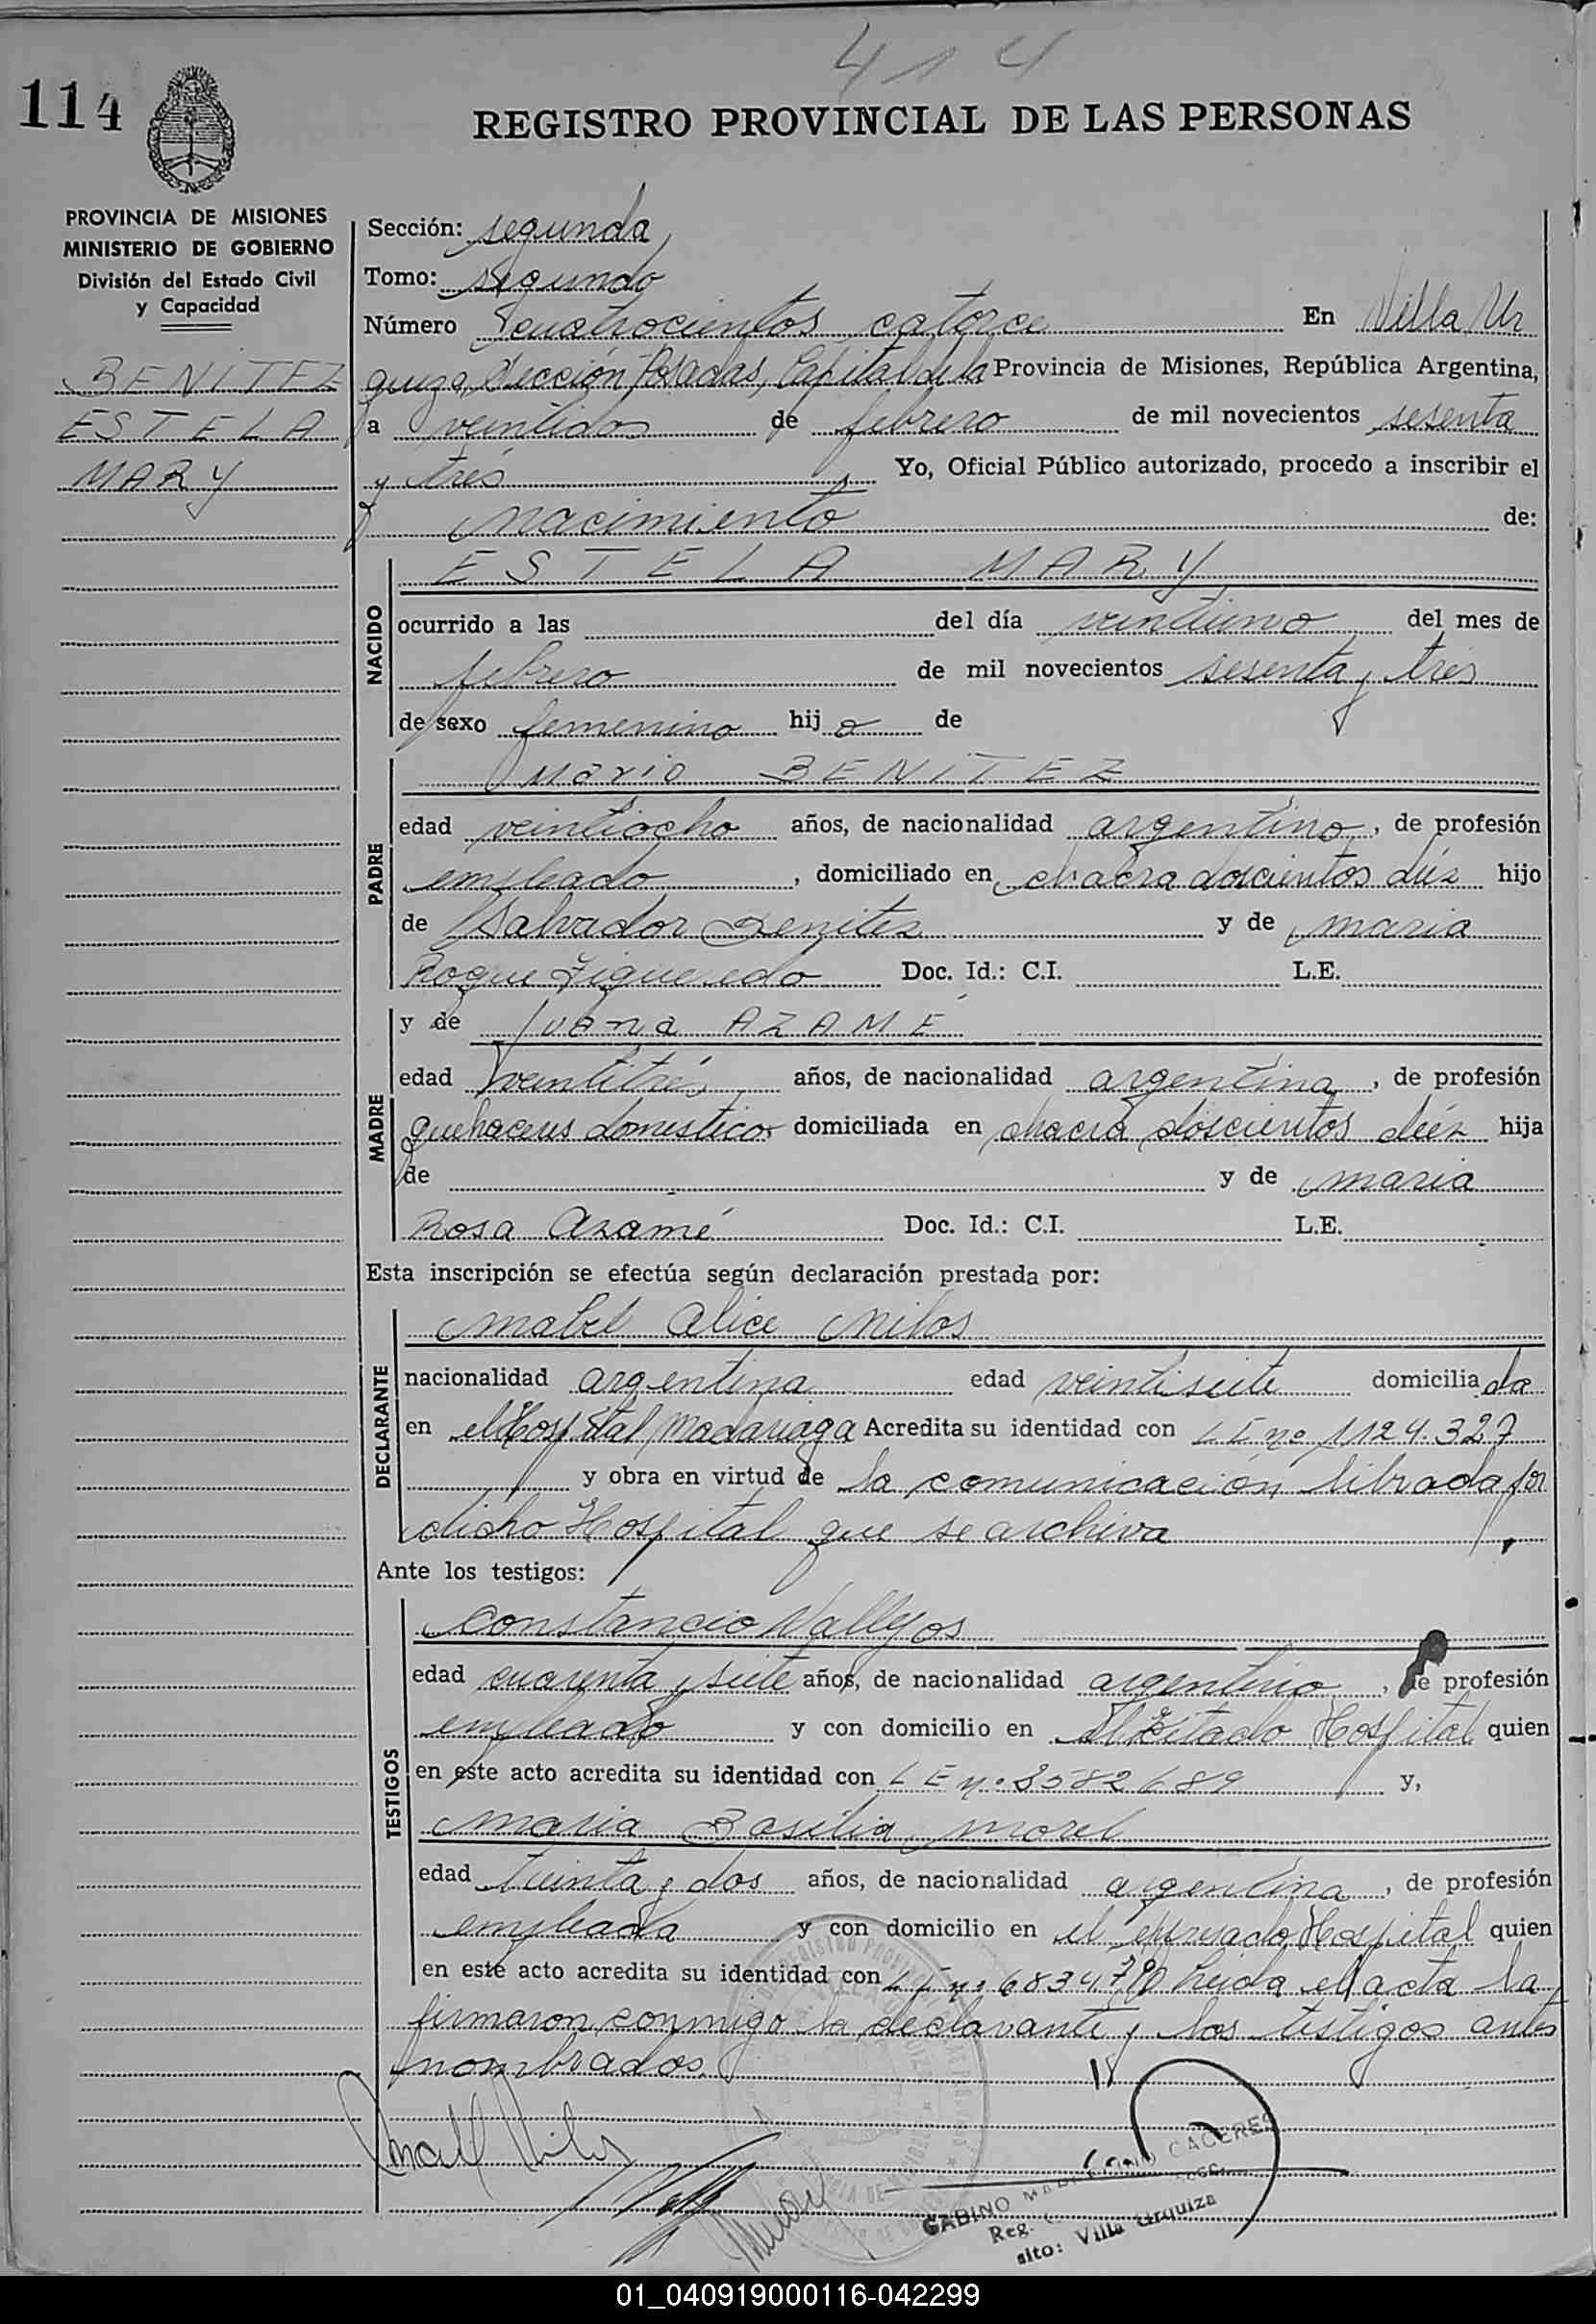 414
114
REGISTRO PROVINCIAL DE LAS PERSONAS
PROVINCIA DE MISIONES
MINISTERIO DE GOBIERNO
División del Estado Civil
y Capacidad
BENITEZ
ESTELA
MARY
Sección: segunda
Tomo: segundo
Número cuatrocientos catorce En Villa Ur
quiza, Sección Posadas, Capital de la Provincia de Misiones, República Argentina,
a veintidos de febrero de mil novecientos sesenta
y tres Yo, Oficial Público autorizado, procedo a inscribir el
nacimiento de:
NACIDO
ESTELA MARY
ocurrido a las del día veintiuno del mes de
febrero de mil novecientos sesenta y tres
de sexo femenino hij a de
PADRE
Mario BENITEZ
edad veintiocho años, de nacionalidad argentino, de profesión
empleado, domiciliado en chacra doscientos diéz hijo
de Salvador Benitez y de maria
Roque Figueredo Doc. Id.: C.I. L.E.
MADRE
y de Juana AZAMÉ
edad veintitrés años, de nacionalidad argentina, de profesión
quehaceres domesticos domiciliada en chacra doscientos diéz hija
de y de maria
Rosa Azamé Doc. Id.: C.I. L.E.
Esta inscripción se efectúa según declaración prestada por:
DECLARANTE
Mabel Alice Milos
nacionalidad argentina edad veintisiete domicilia da
en el Hospital Madariaga Acredita su identidad con L E nº 1124.327
y obra en virtud de la comunicación librada por
dicho Hospital que se archiva
Ante los testigos:
TESTIGOS
Constancio Vallejos
edad cuarenta y siete años, de nacionalidad argentino, de profesión
empleado y con domicilio en el citado Hospital quien
en este acto acredita su identidad con L E nº 3582689 y,
Maria Basilia Morel
edad treinta y dos años, de nacionalidad argentina, de profesión
empleada y con domicilio en el expresado Hospital quien
en este acto acredita su identidad con L E nº 6834790 Leida el acta la
firmaron conmigo la declarante y los testigos antes
nombrados.
Mabel Milos
GABINO CACERES
Reg.
sito: Villa Urquiza
01_040919000116-042299